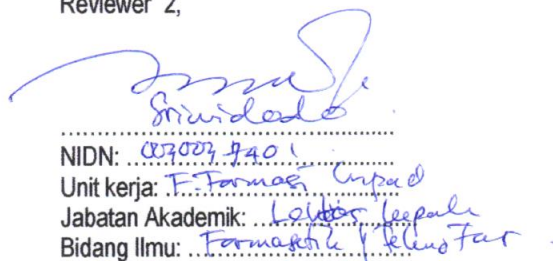 Reviewer 2,
Sriwidodo
NIDN:
Unit kerja: F. Farmasi Unpad
Jabatan Akademik: Lektor Kepala
Bidang Ilmu: Farmasetik